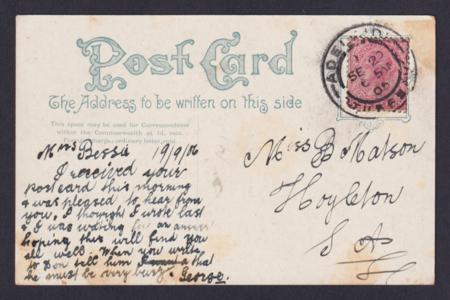 Post Card
The Address to be written on this side
This space may be used for Correspondence
within the Commonwealth at 1d. rate.
ordinary letter rate
ADELAIDE
SE 20
06
Miss Bessie 19/9/06
I received your
postcard this morning
& was pleased to hear from
you, I thought I wrote last
& I was waiting for an answer
hoping this will find you
all well. When you write
to Don tell him that
he must be very busy. George.
Miss B Matson
Hoyleton
S A